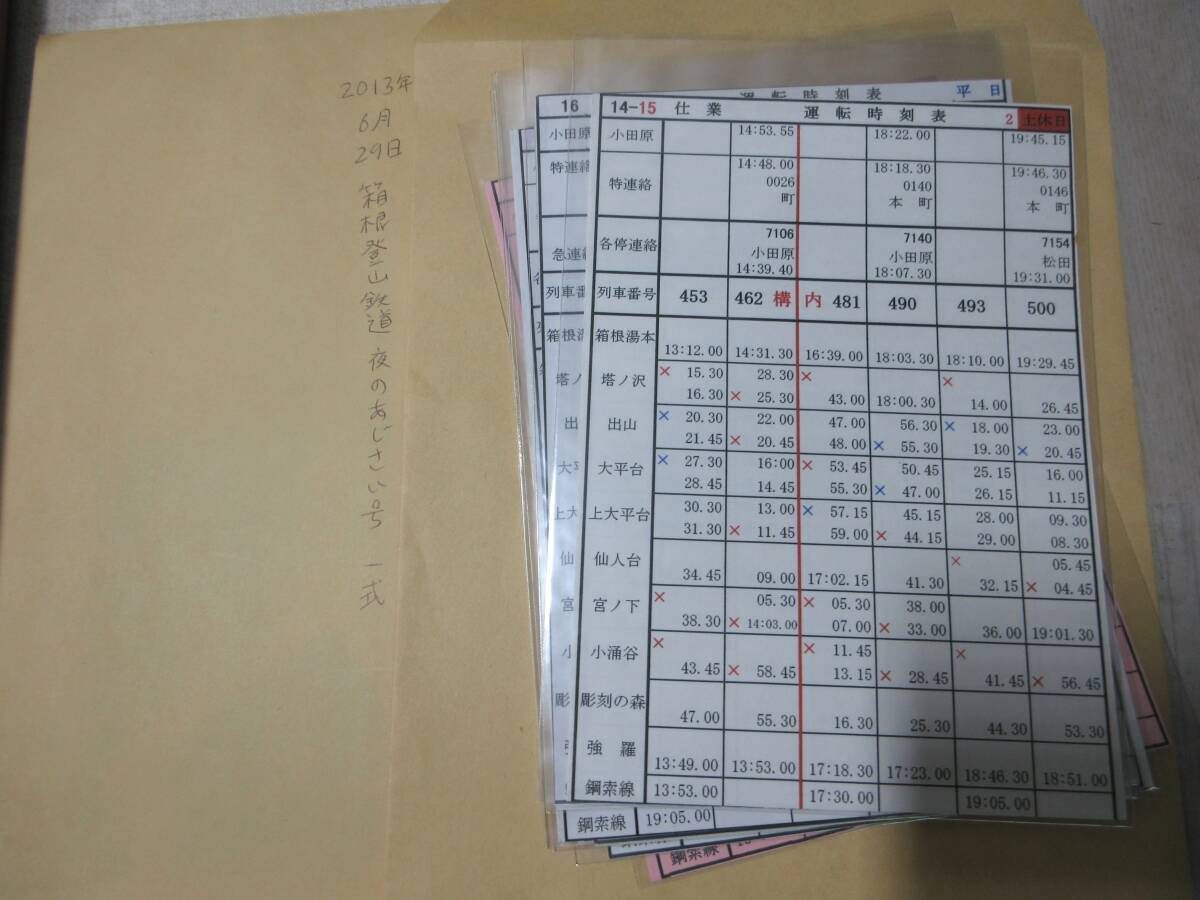 2013年
6月
29日
箱根登山鉄道 夜のあじさい号 一式
運転時刻表 平日
16
小田原
特連絡
急連絡
列車番
14-15 仕業 運転時刻表 2 土休日
小田原 14:53.55 18:22.00 19:45.15
特連絡 14:48.00 18:18.30 19:46.30
0026 0140 0146
町 本町 本町
各停連絡 7106 7140 7154
小田原 小田原 松田
14:39.40 18:07.30 19:31.00
列車番号 453 462 構 内 481 490 493 500
箱根湯本
13:12.00 14:31.30 16:39.00 18:03.30 18:10.00 19:29.45
塔ノ沢 × 15.30 28.30 × ×
16.30 × 25.30 43.00 18:00.30 14.00 26.45
出山 × 20.30 22.00 47.00 56.30 × 18.00 23.00
21.45 × 20.45 48.00 × 55.30 19.30 × 20.45
大平台 × 27.30 16:00 × 53.45 50.45 25.15 16.00
28.45 14.45 55.30 × 47.00 26.15 11.15
上大平台 30.30 13.00 × 57.15 45.15 28.00 09.30
31.30 × 11.45 59.00 × 44.15 29.00 08.30
仙人台 × 05.45
34.45 09.00 17:02.15 41.30 32.15 × 04.45
宮ノ下 × 05.30 × 05.30 38.00
38.30 × 14:03.00 07.00 × 33.00 36.00 19:01.30
小涌谷 × × 11.45 ×
43.45 × 58.45 13.15 × 28.45 41.45 × 56.45
彫刻の森
47.00 55.30 16.30 25.30 44.30 53.30
強羅
13:49.00 13:53.00 17:18.30 17:23.00 18:46.30 18:51.00
鋼索線 13:53.00 17:30.00 19:05.00
鋼索線 19:05.00
鋼索線